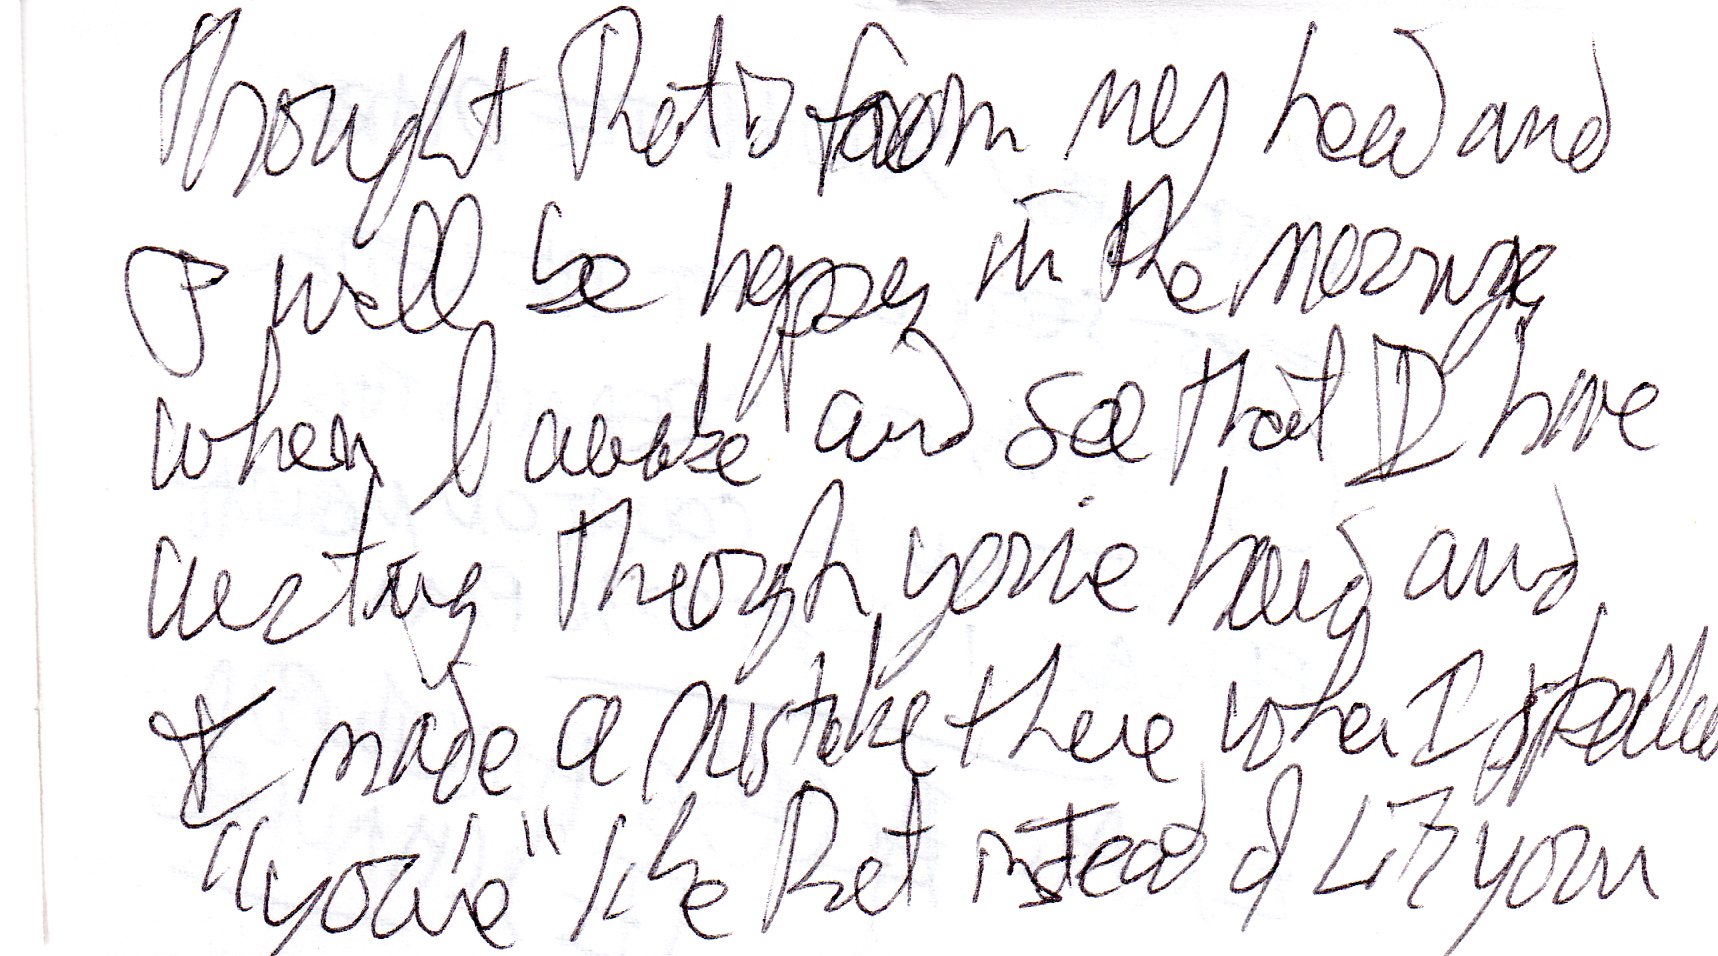 thought that is from my head and
I will be happy in the morning
when I awake and see that I have
writing through you're hand and
I made a mistake there when I spelled
"you're" like that instead of your